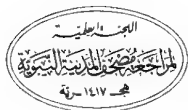 اللجنة العلمية
لمراجعة مصحف المدينة النبوية
١٤١٧